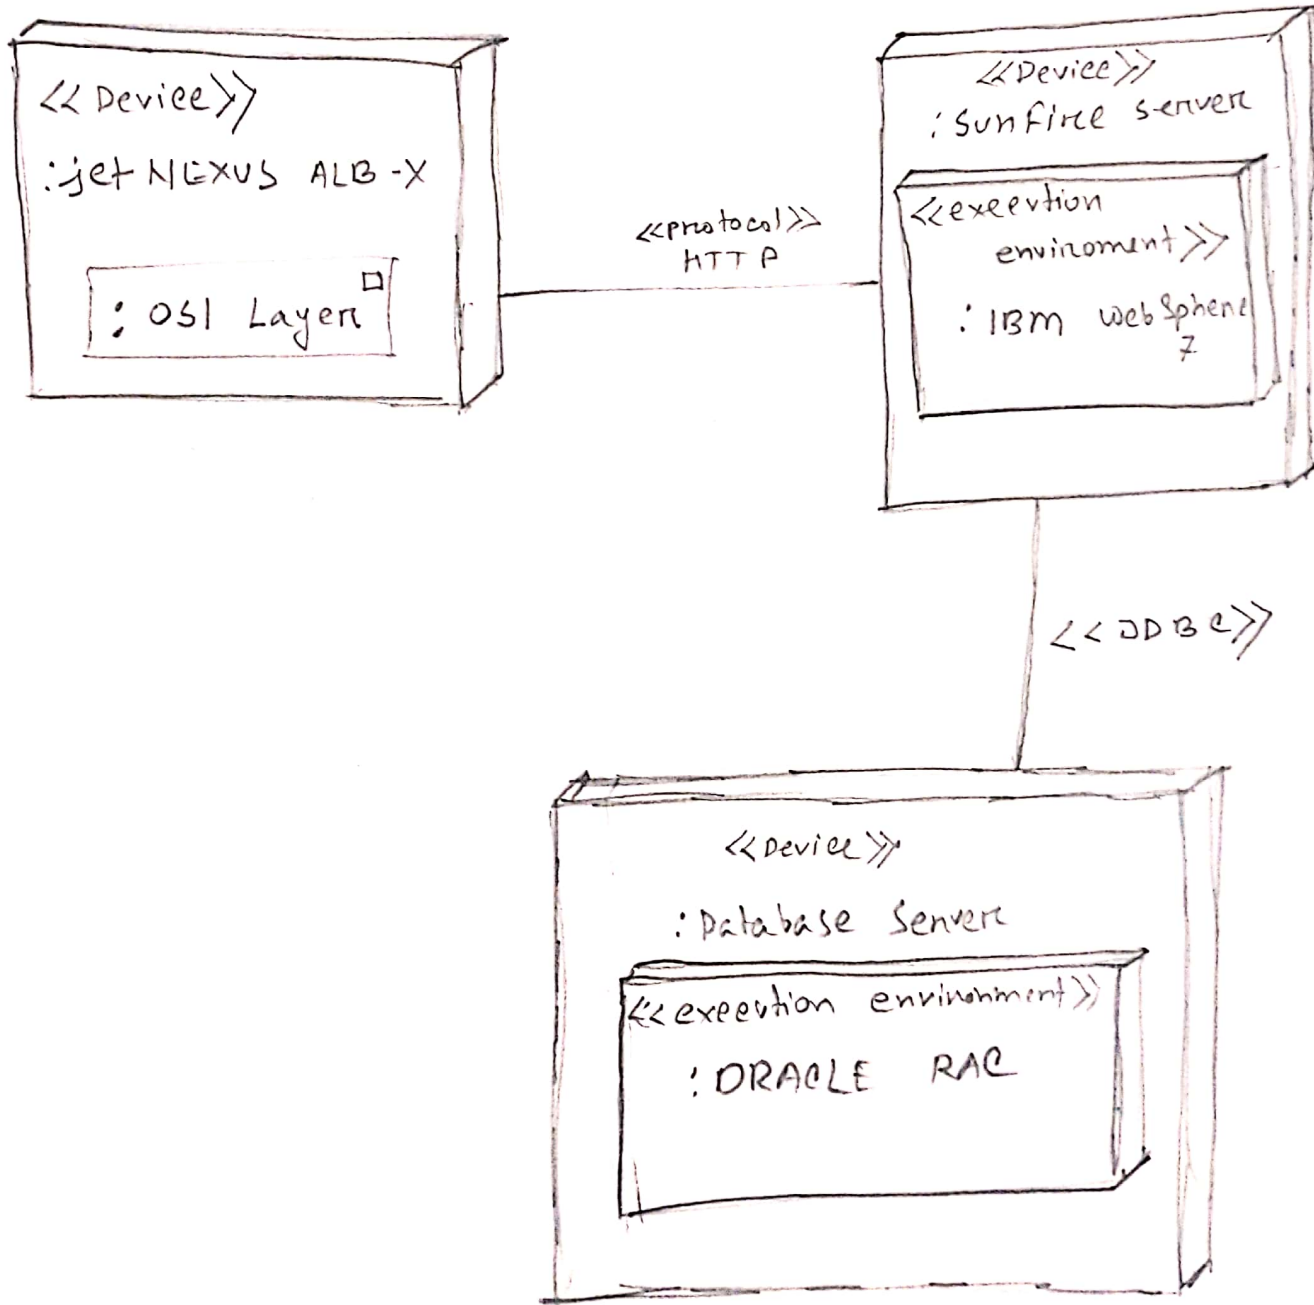 <<Device>>
:jetNEXUS ALB-X
: OSI Layer
<<protocol>>
HTTP
<<Device>>
:Sunfire server
<<execution
enviroment>>
: IBM WebSphere
7
<<JDBC>>
<<Device>>
:Database Server
<<execution environment>>
:ORACLE RAC